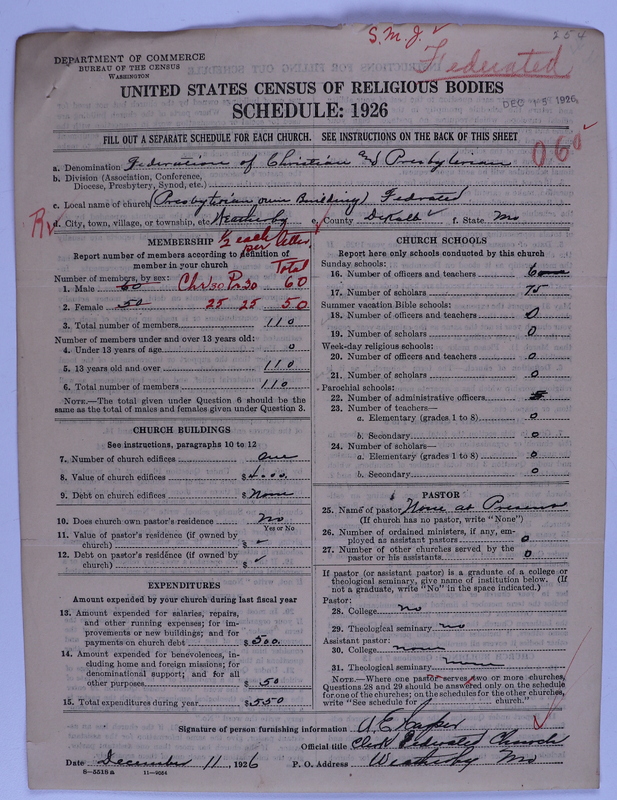 254
S.M.J. Federated
DEPARTMENT OF COMMERCE
BUREAU OF THE CENSUS
WASHINGTON
UNITED STATES CENSUS OF RELIGIOUS BODIES
DEC 15 1926
SCHEDULE: 1926
FILL OUT A SEPARATE SCHEDULE FOR EACH CHURCH. SEE INSTRUCTIONS ON THE BACK OF THIS SHEET
060
a. Denomination Federation of Christian and Presbyterian
b. Division (Association, Conference,
Diocese, Presbytery, Synod, etc.)
c. Local name of church (Presbyterian own Building) Fedrated
d. City, town, village, or township, etc. Weatherby e. County DeKalb f. State Mo
MEMBERSHIP 1/2 each per letter.
Report number of members according to definition of
member in your church
Total
Number of members, by sex:
1. Male 60 Chr 30 Pr 30 60
2. Female 50 25 25 50
3. Total number of members 110
Number of members under and over 13 years old:
4. Under 13 years of age 0
5. 13 years old and over 110
6. Total number of members 110
NOTE.—The total given under Question 6 should be the
same as the total of males and females given under Question 3.
CHURCH BUILDINGS
See instructions, paragraphs 10 to 12
7. Number of church edifices one
8. Value of church edifices $
9. Debt on church edifices $ None
10. Does church own pastor's residence No
Yes or No
11. Value of pastor's residence (if owned by
church) $
12. Debt on pastor's residence (if owned by
church) $
EXPENDITURES
Amount expended by your church during last fiscal year
13. Amount expended for salaries, repairs,
and other running expenses; for im-
provements or new buildings; and for
payments on church debt $ 500.
14. Amount expended for benevolences, in-
cluding home and foreign missions; for
denominational support; and for all
other purposes $ 50
15. Total expenditures during year $ 550
CHURCH SCHOOLS
Report here only schools conducted by this church
Sunday schools:
16. Number of officers and teachers 6
17. Number of scholars 75
Summer vacation Bible schools:
18. Number of officers and teachers 0
19. Number of scholars 0
Week-day religious schools:
20. Number of officers and teachers 0
21. Number of scholars 0
Parochial schools:
22. Number of administrative officers
23. Number of teachers—
a. Elementary (grades 1 to 8) 0
b. Secondary 0
24. Number of scholars—
a. Elementary (grades 1 to 8) 0
b. Secondary 0
PASTOR
25. Name of pastor None at Present
(If church has no pastor, write "None")
26. Number of ordained ministers, if any, em-
ployed as assistant pastors 0
27. Number of other churches served by the
pastor or his assistants 0
If pastor (or assistant pastor) is a graduate of a college or
theological seminary, give name of institution below. (If
not a graduate, write "No" in the space indicated.)
Pastor:
28. College no
29. Theological seminary no
Assistant pastor:
30. College none
31. Theological seminary none
NOTE.—Where one pastor serves two or more churches,
Questions 28 and 29 should be answered only on the schedule
for one of the churches; on the schedules for the other churches,
write "See schedule for church."
Signature of person furnishing information A. E.
Official title Clerk Federated Church
Date December 11, 1926 P. O. Address Weatherby Mo
8—5518a 11—9054